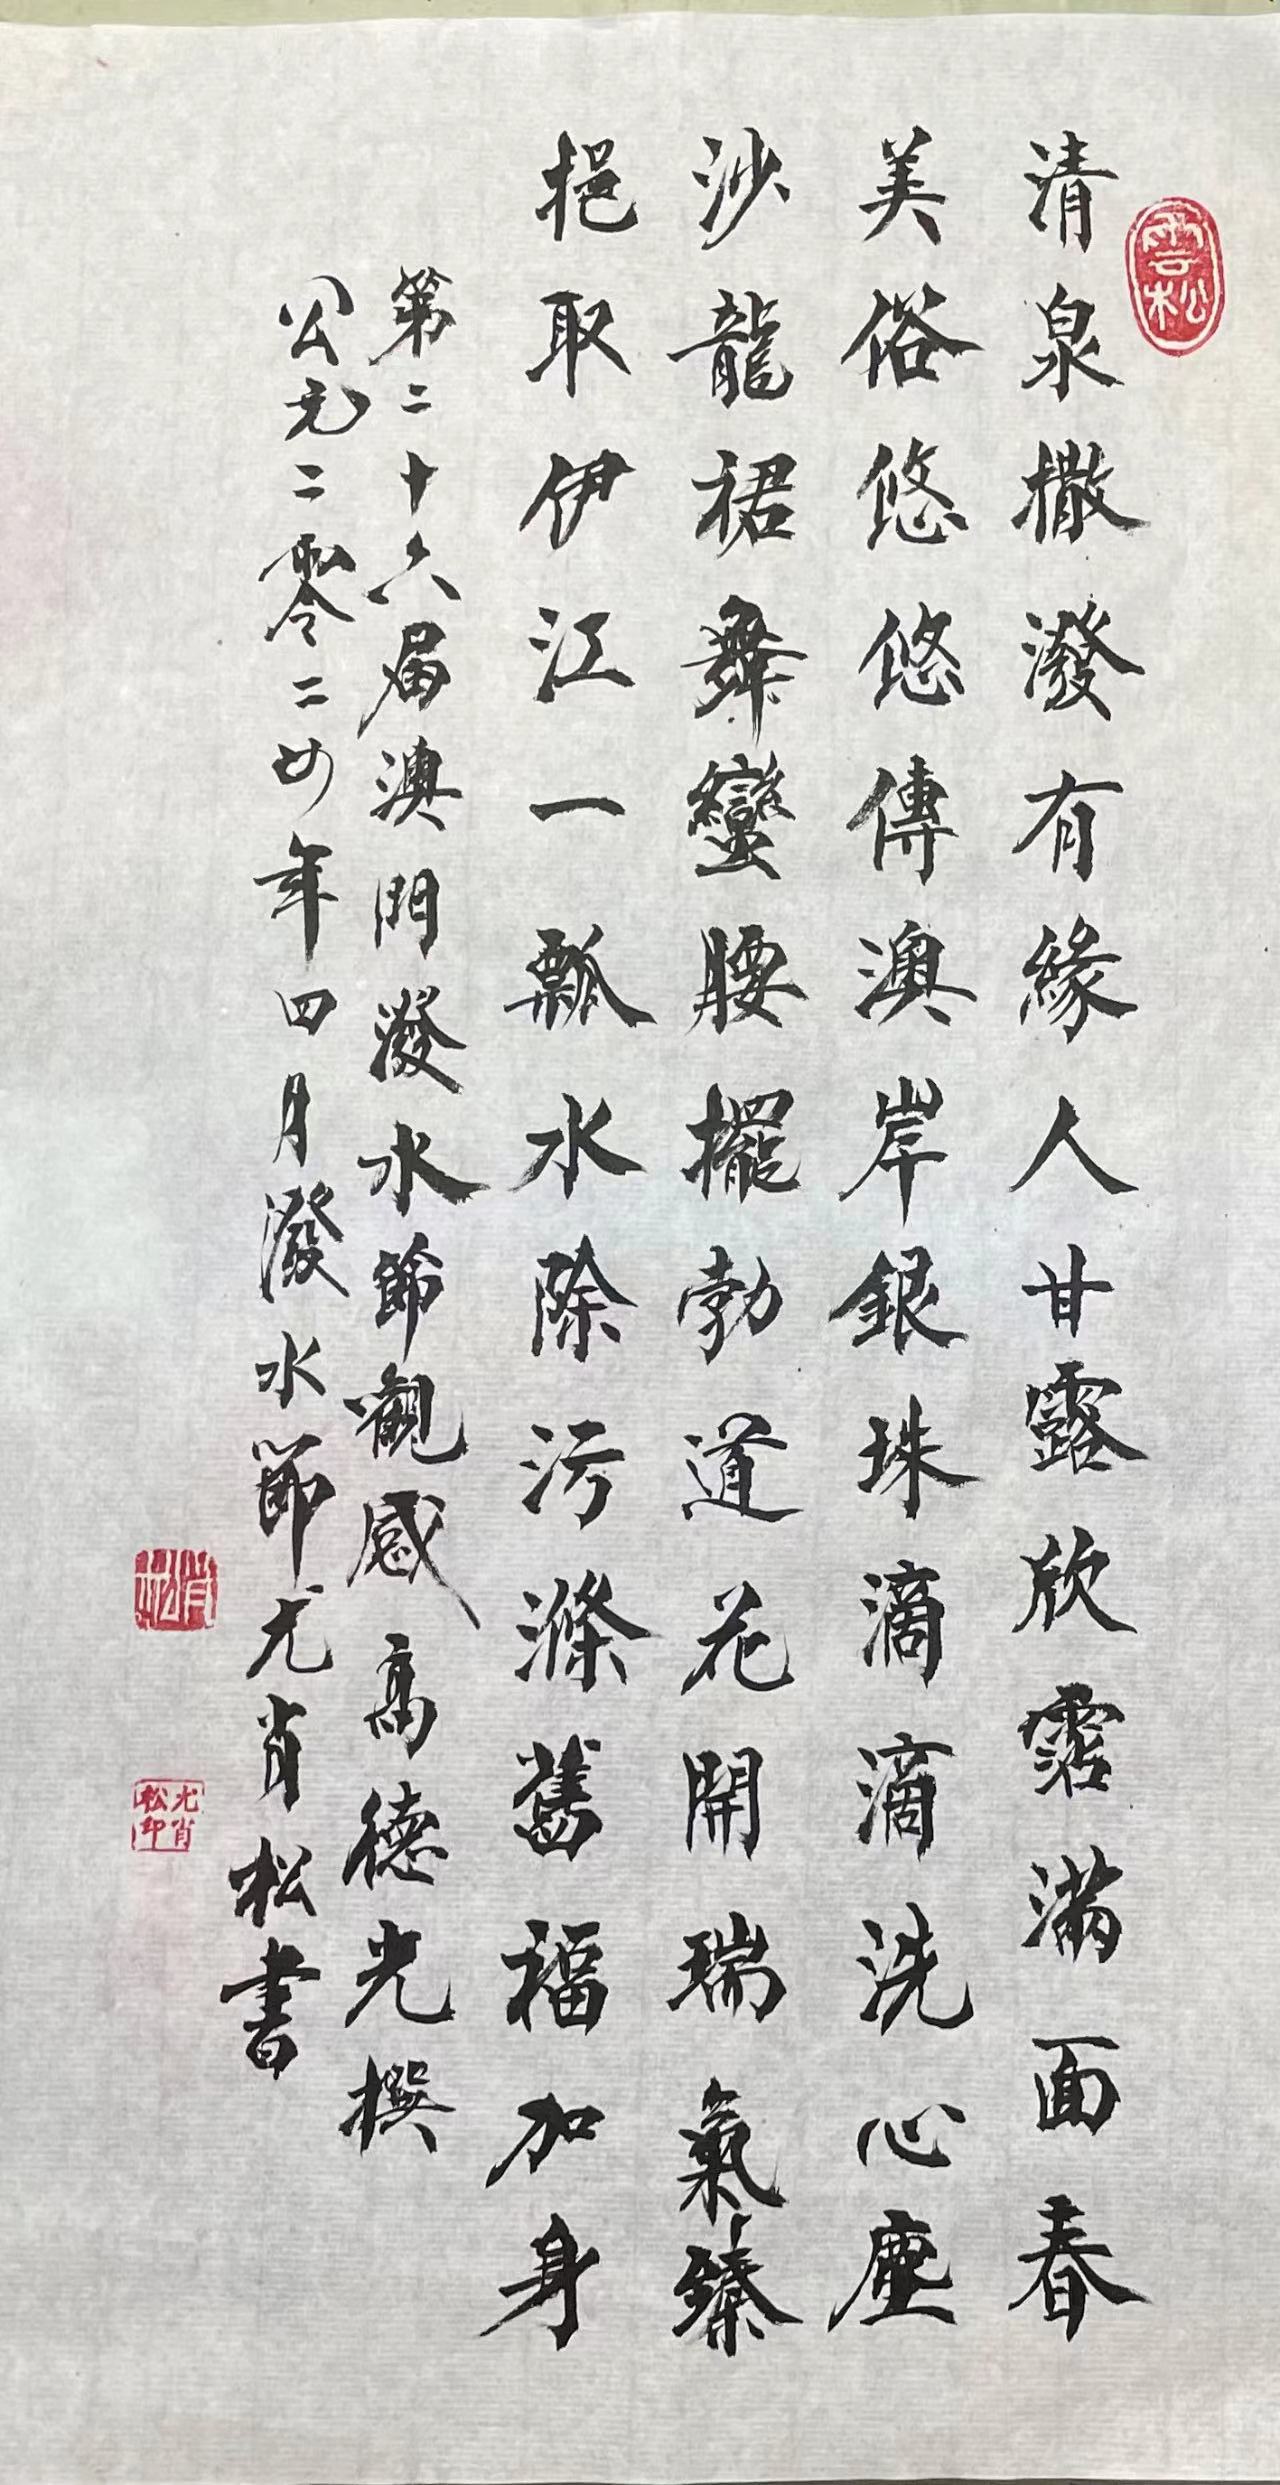 雲松
清泉撒潑有緣人甘露欣霑滿面春
美俗悠悠傳澳岸銀珠滴滴洗心塵
沙龍裙舞蠻腰擺勃道花開瑞氣臻
挹取伊江一瓢水除污滌舊福加身
第二十六屆澳門潑水節觀感高德光撰
公元二零二四年四月潑水節尤肖松書
肖松
尤肖松印